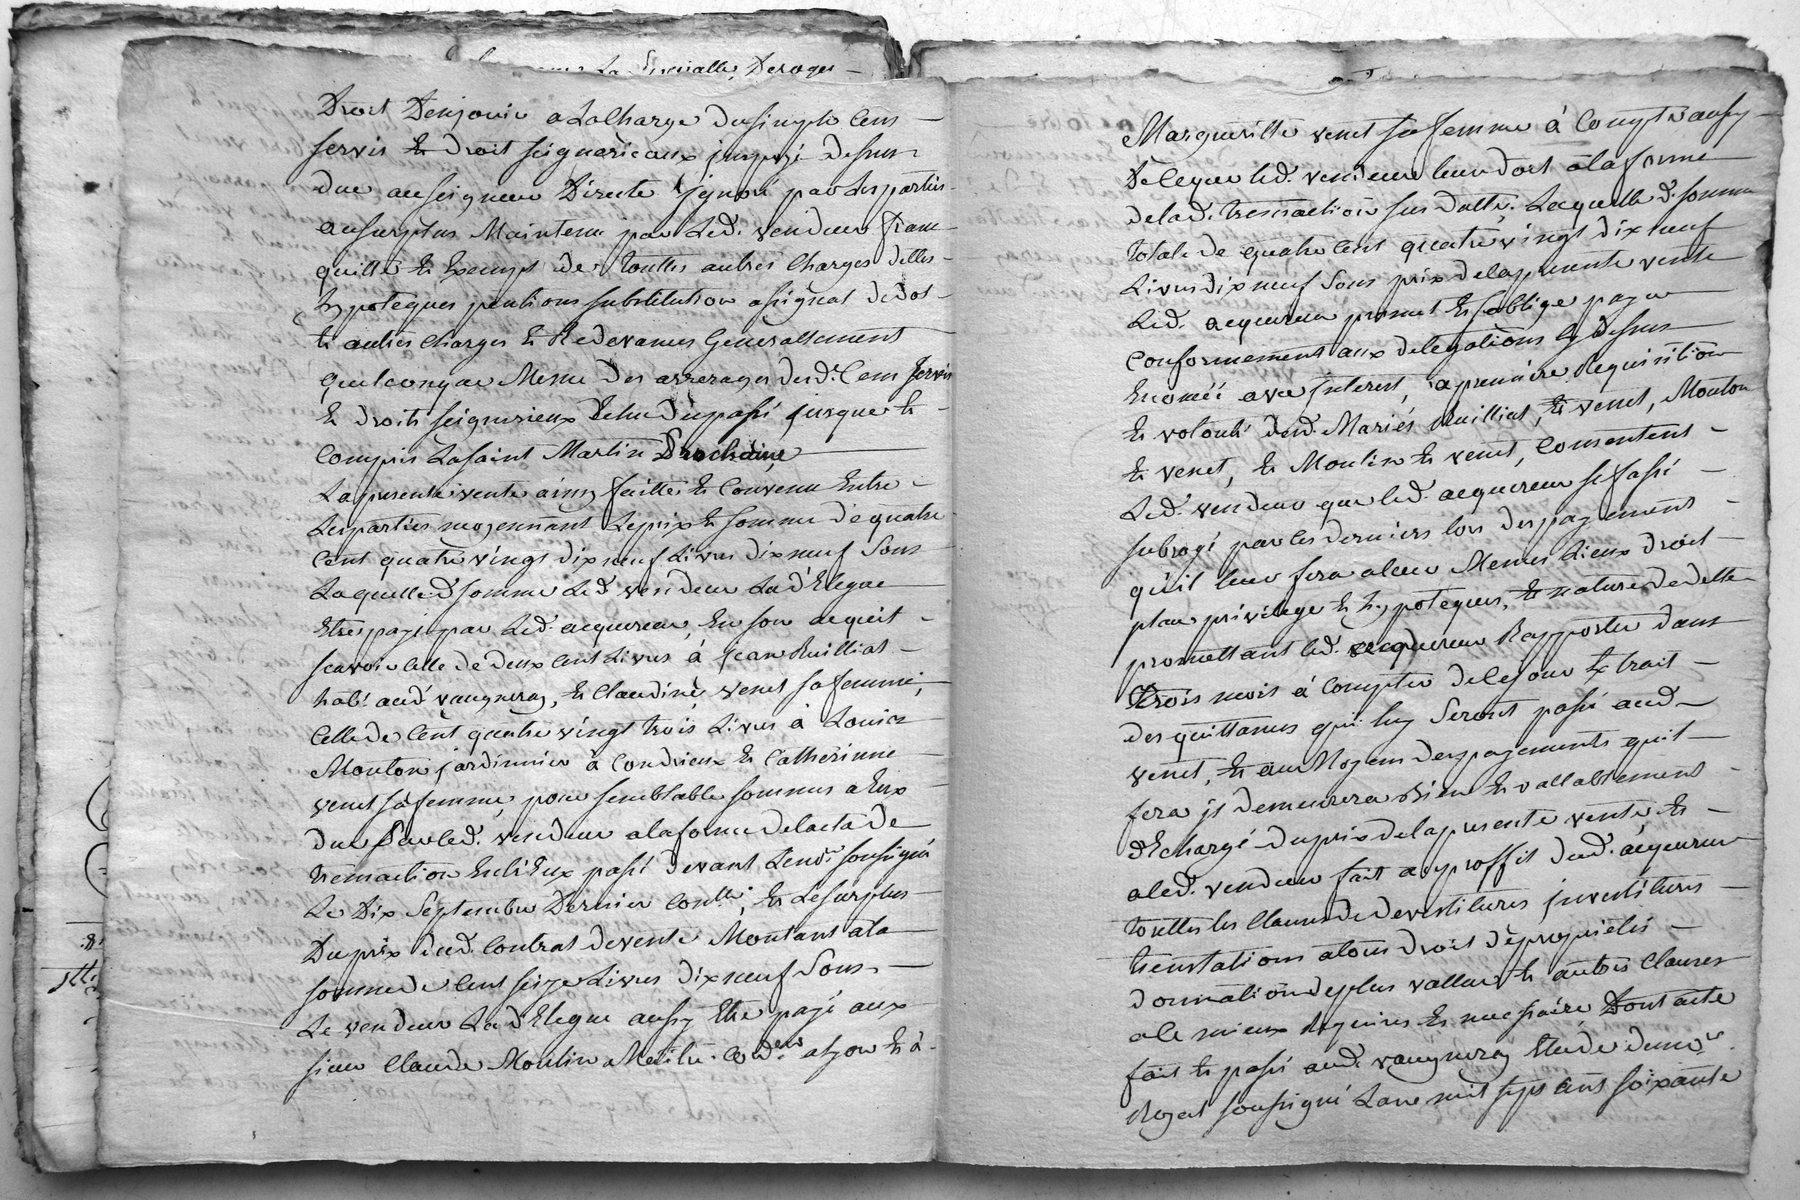 La Generalle, Deroger
Droit Denjouir a La Charge Du simple Cens
servis Et Droit seigneuriaux imposé Dessus
due au seigneur Directe ignoré par Les parties
au surplus Maintenu par Led. vendeur franc
quitte Et Exempt De touttes autres Charges Dettes
hypoteques pentions substitution asignat De dot
Et autres charges Et Redevances Generallement
quelconque Mesme Des arrerages desd. Cens servis
Et droits seigneurieux Echu Du passé jusque Et
Compris La saint Martin Prochaine
La presente vente ainsy faitte Et Convenu Entre
Les parties moyennant Le prix Et somme De quatre
Cent quatre vingt dix neuf Livres dix neuf Sous
Laquelle d. somme Led. vendeur La d'Elegue
Etre payé par Led. acquereur, En son acquit
scavoir Celle De deux Cent Livres á Jean Ruilliat
hab.t aud. vaugneray, Et Claudine venet sa femme,
Celle De Cent quatre vingt trois Livres à Louis
Mouton jardinnier à Condrieux Et Catherinne
venet sa femme, pour semblable sommes a Eux
Due Par Led. vendeur a la forme de lacte De
trensaction Entr'Eux passé devant Le no.re soussigné
Le Dix Septembre Dernier Con.llé, Et Le surplus
Du prix dud. Contrat de vente Montant a la
somme de Cent seize Livres dix neuf Sous
Le vendeur La d'Elegue aussy Etre payé aux
sieur Claude Moulin Maitre Cord.er a Lyon Et à
Margueritte venet sa femme à Compte aussy
De ceque Led. vendeur leur doit a la forme
de lad. trensaction sus datté. Laquelle d. somme
totale de quatre cent quatre vingt dix neuf
Livres dix neuf Sous prix de la presente vente
Led. acquereur promet Et soblige payer
Conformement aux delegations Cy dessus
Enoncéé avec interest, a premiere Requisition
Et volonté desd. Mariés Ruilliat, Et venet, Mouton
Et venet, Et Moulin Et venet, Consentent
Led. vendeur que led. acquereur se fasse
subrogé par les derniers lors des payements
qu'il leur fera a leur Mesmes Lieux Droit
place privilege Et hypoteques, Et nature De dette
promettant led. acquereur Rapporter dans
trois mois à Compter de ce jour Extrait
des quittances qui luy seront passé aud.
venet, Et au Moyen des payements quil
fera il demeurera Bien Et vallablement
dEchargé du prix de la presente vente, Et
a led. vendeur fait au proffit dud. acquereur
touttes les Clauses De devestitures investitures
trenslations a tous droit de proprietés
donnation de plus vallue Et autres Clauses
a Ce mieux Requises Et necessaire Dont acte
fait Et passé aud. vaugneray Etude du no.re
Royal soussigné Lan mil sept cent soixante